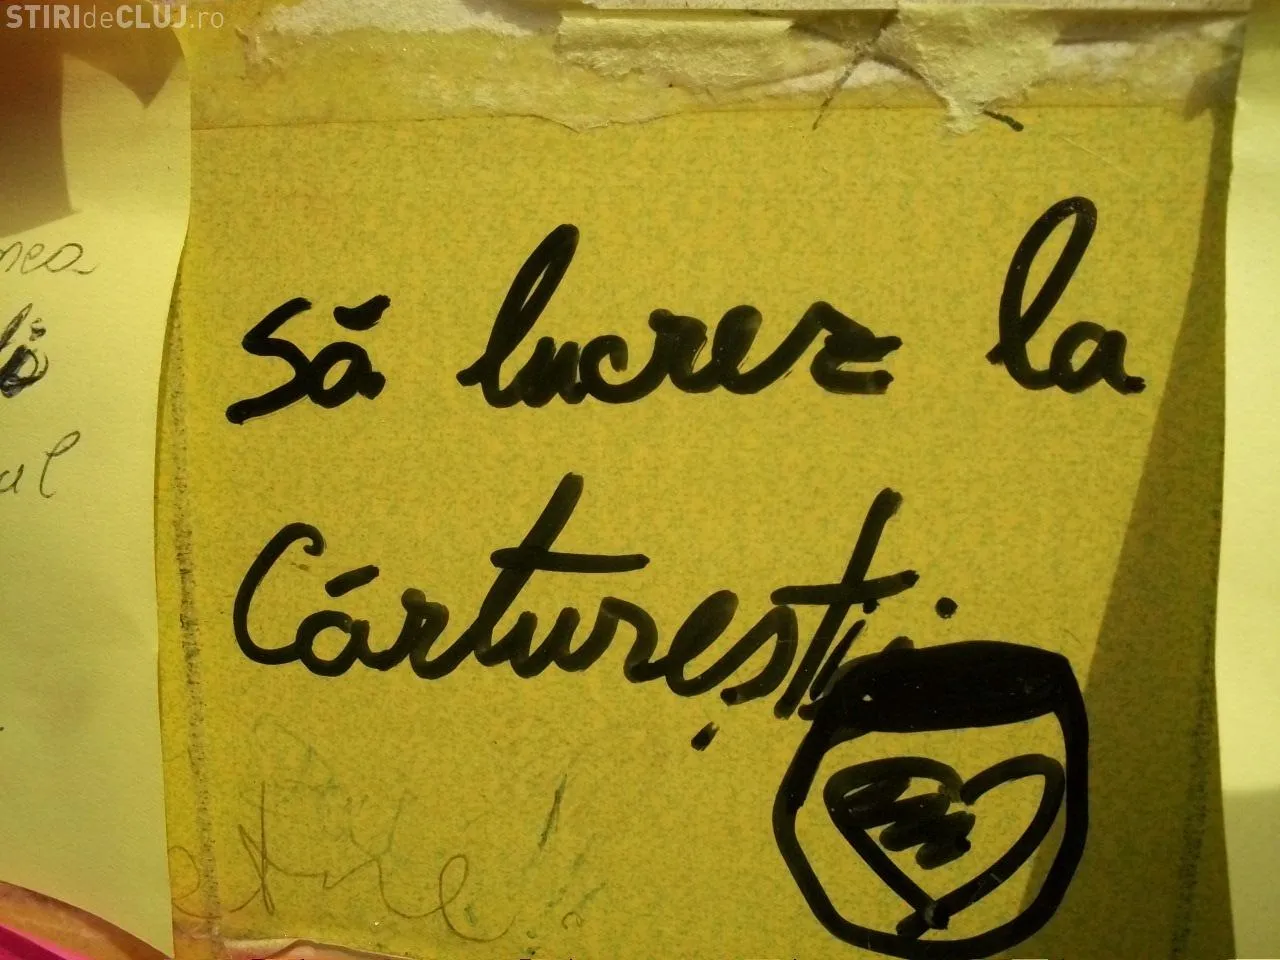 STIRIdeCLUJ.ro
Să lucrez la
Cărturești